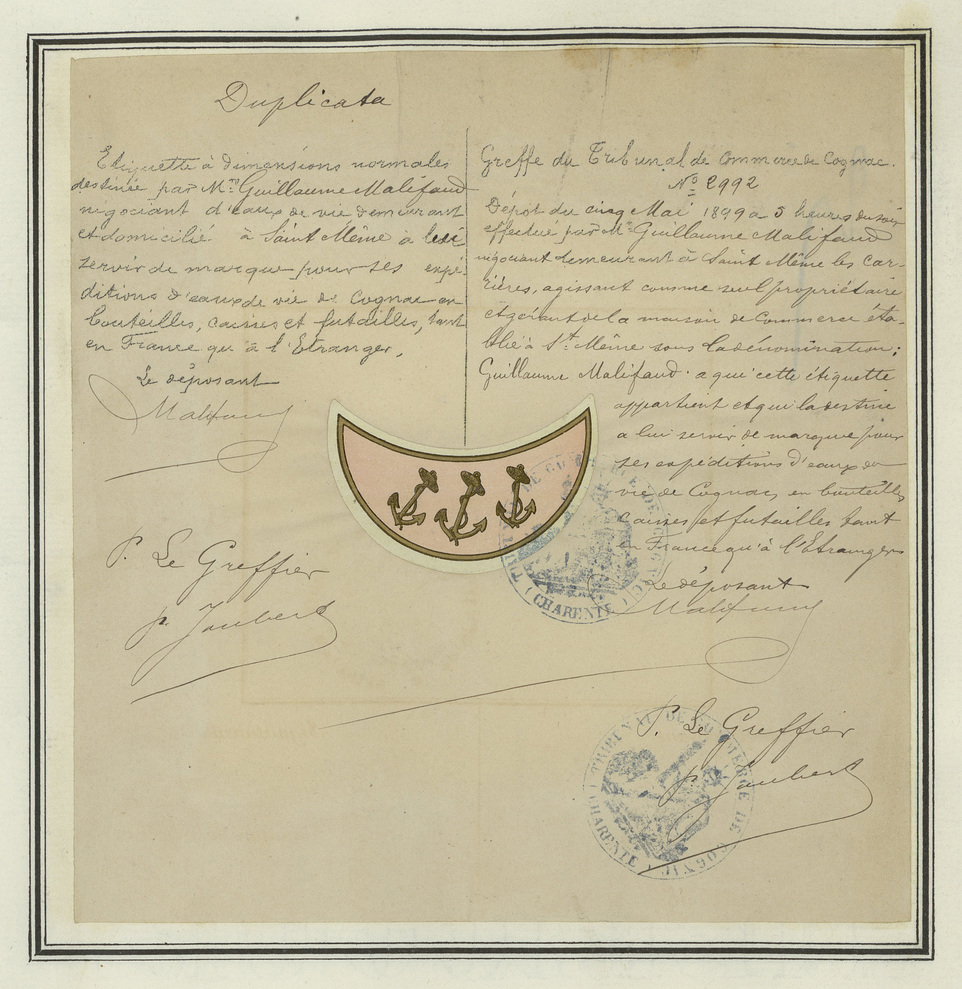 Duplicata
Etiquette à dimensions normales
destinée par Mr Guillaume Malifaud
négociant d'eaux de vie demeurant
et domicilié à Saint Même à lui
servir de marque pour ses expé-
ditions d'eaux de vie de Cognac en
bouteilles, caisses et futailles, tant
en France qu'à l'Etranger,
Le déposant
Malifaud
P. Le Greffier
p. Joubert
Greffe du Tribunal de Commerce de Cognac.
No 2992
Dépot du cinq Mai 1899 a 5 heures du soir
effectué par Mr Guillaume Malifaud
négociant demeurant à Saint Même les Car-
rières, agissant comme seul propriétaire
et gérant de la maison de Commerce éta-
blie à St Même sous la dénomination:
Guillaume Malifaud a qui cette étiquette
appartient et qui la destine
a lui servir de marque pour
ses expéditions d'eaux de
vie de Cognac, en bouteilles
caisses et futailles tant
en France qu'à l'Etranger
Le déposant
Malifaud
TRIBUNAL DE COMMERCE DE COGNAC (CHARENTE)
P. Le Greffier
p. Joubert
TRIBUNAL DE COMMERCE DE COGNAC (CHARENTE)